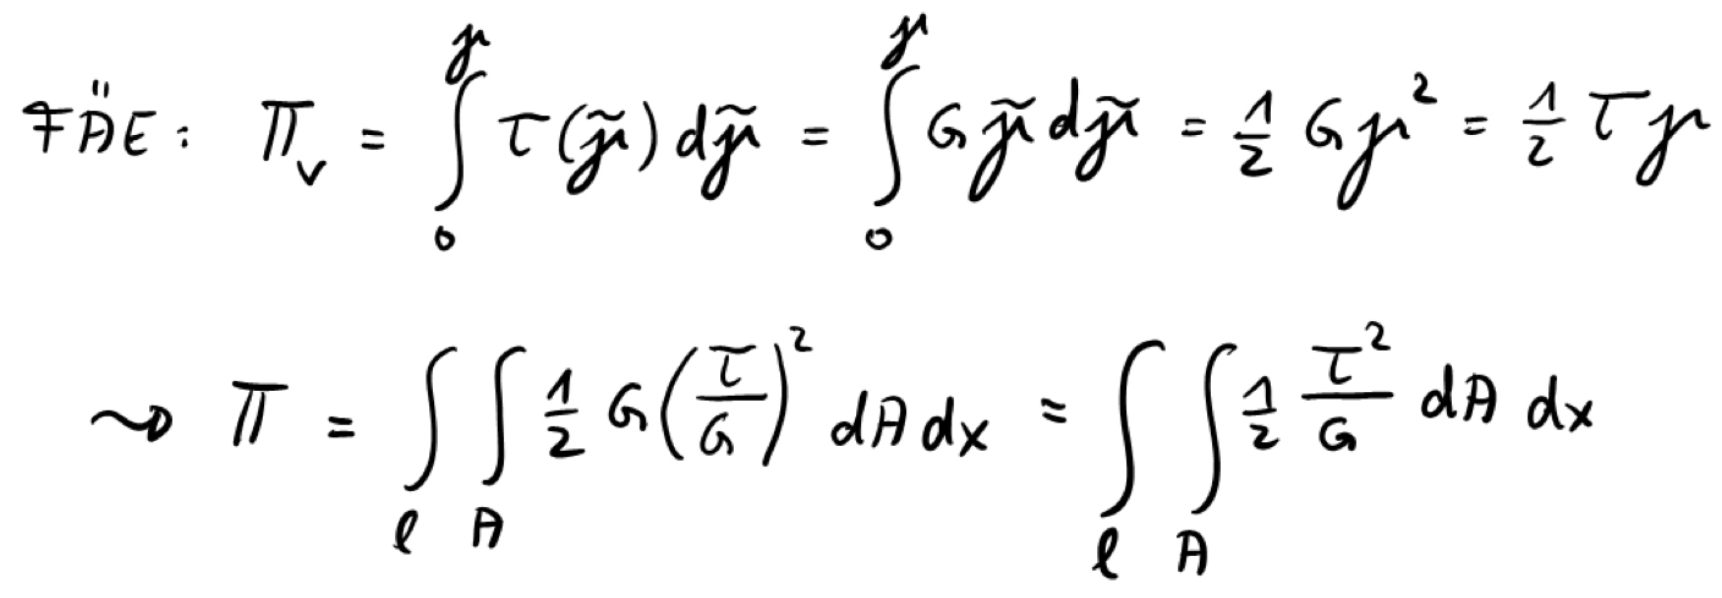 FÄE: Π_v = ∫_0^γ τ(γ̃) dγ̃ = ∫_0^γ G γ̃ dγ̃ = 1/2 G γ² = 1/2 τ γ
⇝ Π = ∫_l ∫_A 1/2 G (τ/G)² dA dx = ∫_l ∫_A 1/2 τ²/G dA dx